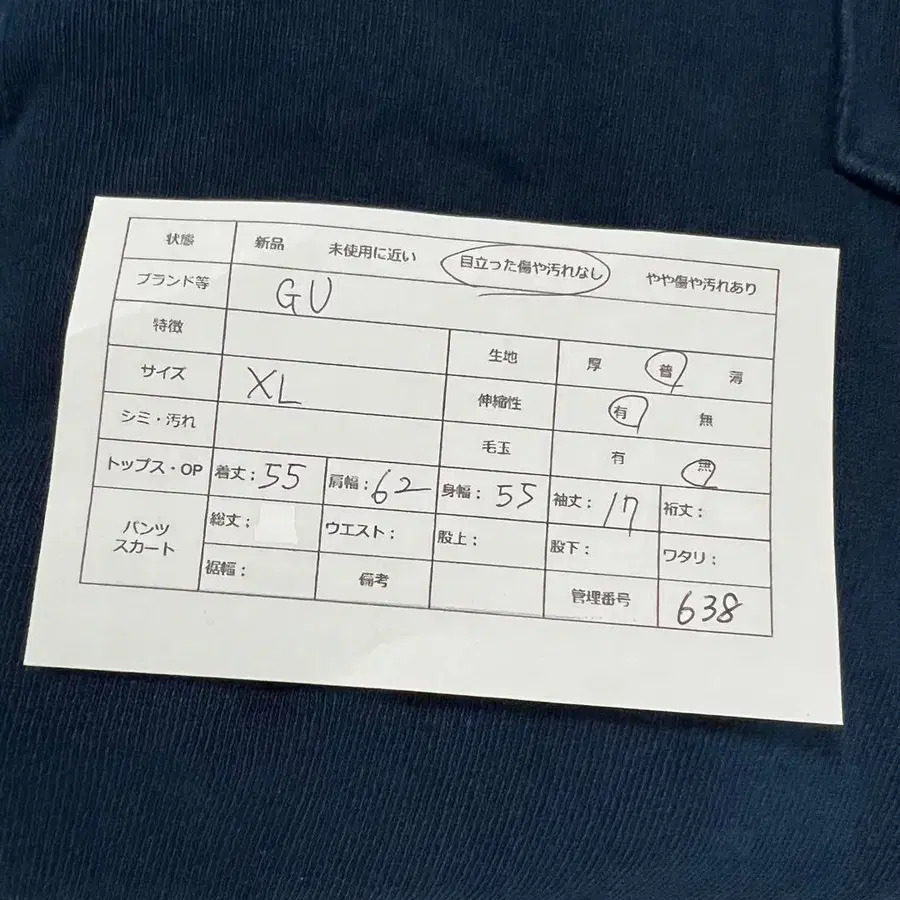 状態 新品 未使用に近い 目立った傷や汚れなし やや傷や汚れあり
ブランド等 GU
特徴 生地 厚 普 薄
サイズ XL 伸縮性 有 無
シミ・汚れ 毛玉 有 無
トップス・OP 着丈：55 肩幅：62 身幅：55 袖丈：17 裄丈：
パンツ スカート 総丈： ウエスト： 股上： 股下： ワタリ：
裾幅： 備考 管理番号 638